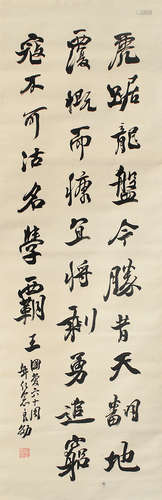 虎踞龍盤今勝昔天翻地
覆慨而慷宜將剩勇追窮
寇不可沽名學霸王
國慶六十周